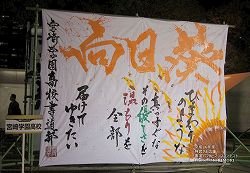 向日葵
ひまわりのような
真っすぐな
その優しさを
温もりを
全部
届けて
ゆきたい
宮崎学園高校書道部
宮崎学園高校